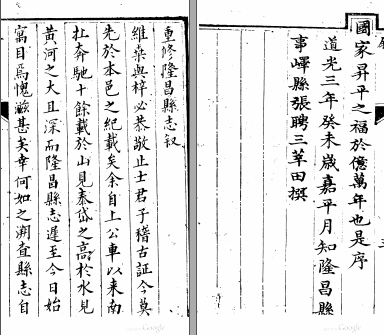 國家昇平之福於億萬年也是序
道光三年癸未歲嘉平月知隆昌縣
事嶧縣張聘三莘田撰
重修隆昌縣志叙
維桑與梓必恭敬止士君子稽古証今莫
先於本邑之紀載矣余自上公車以来南
北奔馳十餘載於山見泰岱之高於水見
黄河之大且深而隆昌縣志遲至今日始
寓目焉愧歉甚矣幸何如之溯查縣志自
Google
Google